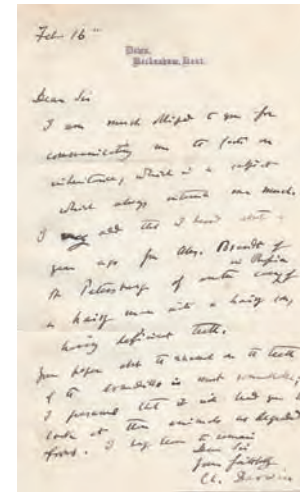 Feb. 16th
Down,
Beckenham, Kent.
Dear Sir
I am much obliged to you for
communicating to me the facts on
inheritance, which is a subject
which always interests me much.
I may add that I heard about a
year ago from Alex. Brandt of
St Petersburg of another case of
in Russia
a hairy man with a hairy son,
having deficient teeth.
Your paper
teeth
of the crocodile is most remarkable;
I presume that it will lead you to
look at these animals as degraded
forms. I beg leave to remain
Dear Sir
Yours faithfully
Ch. Darwin